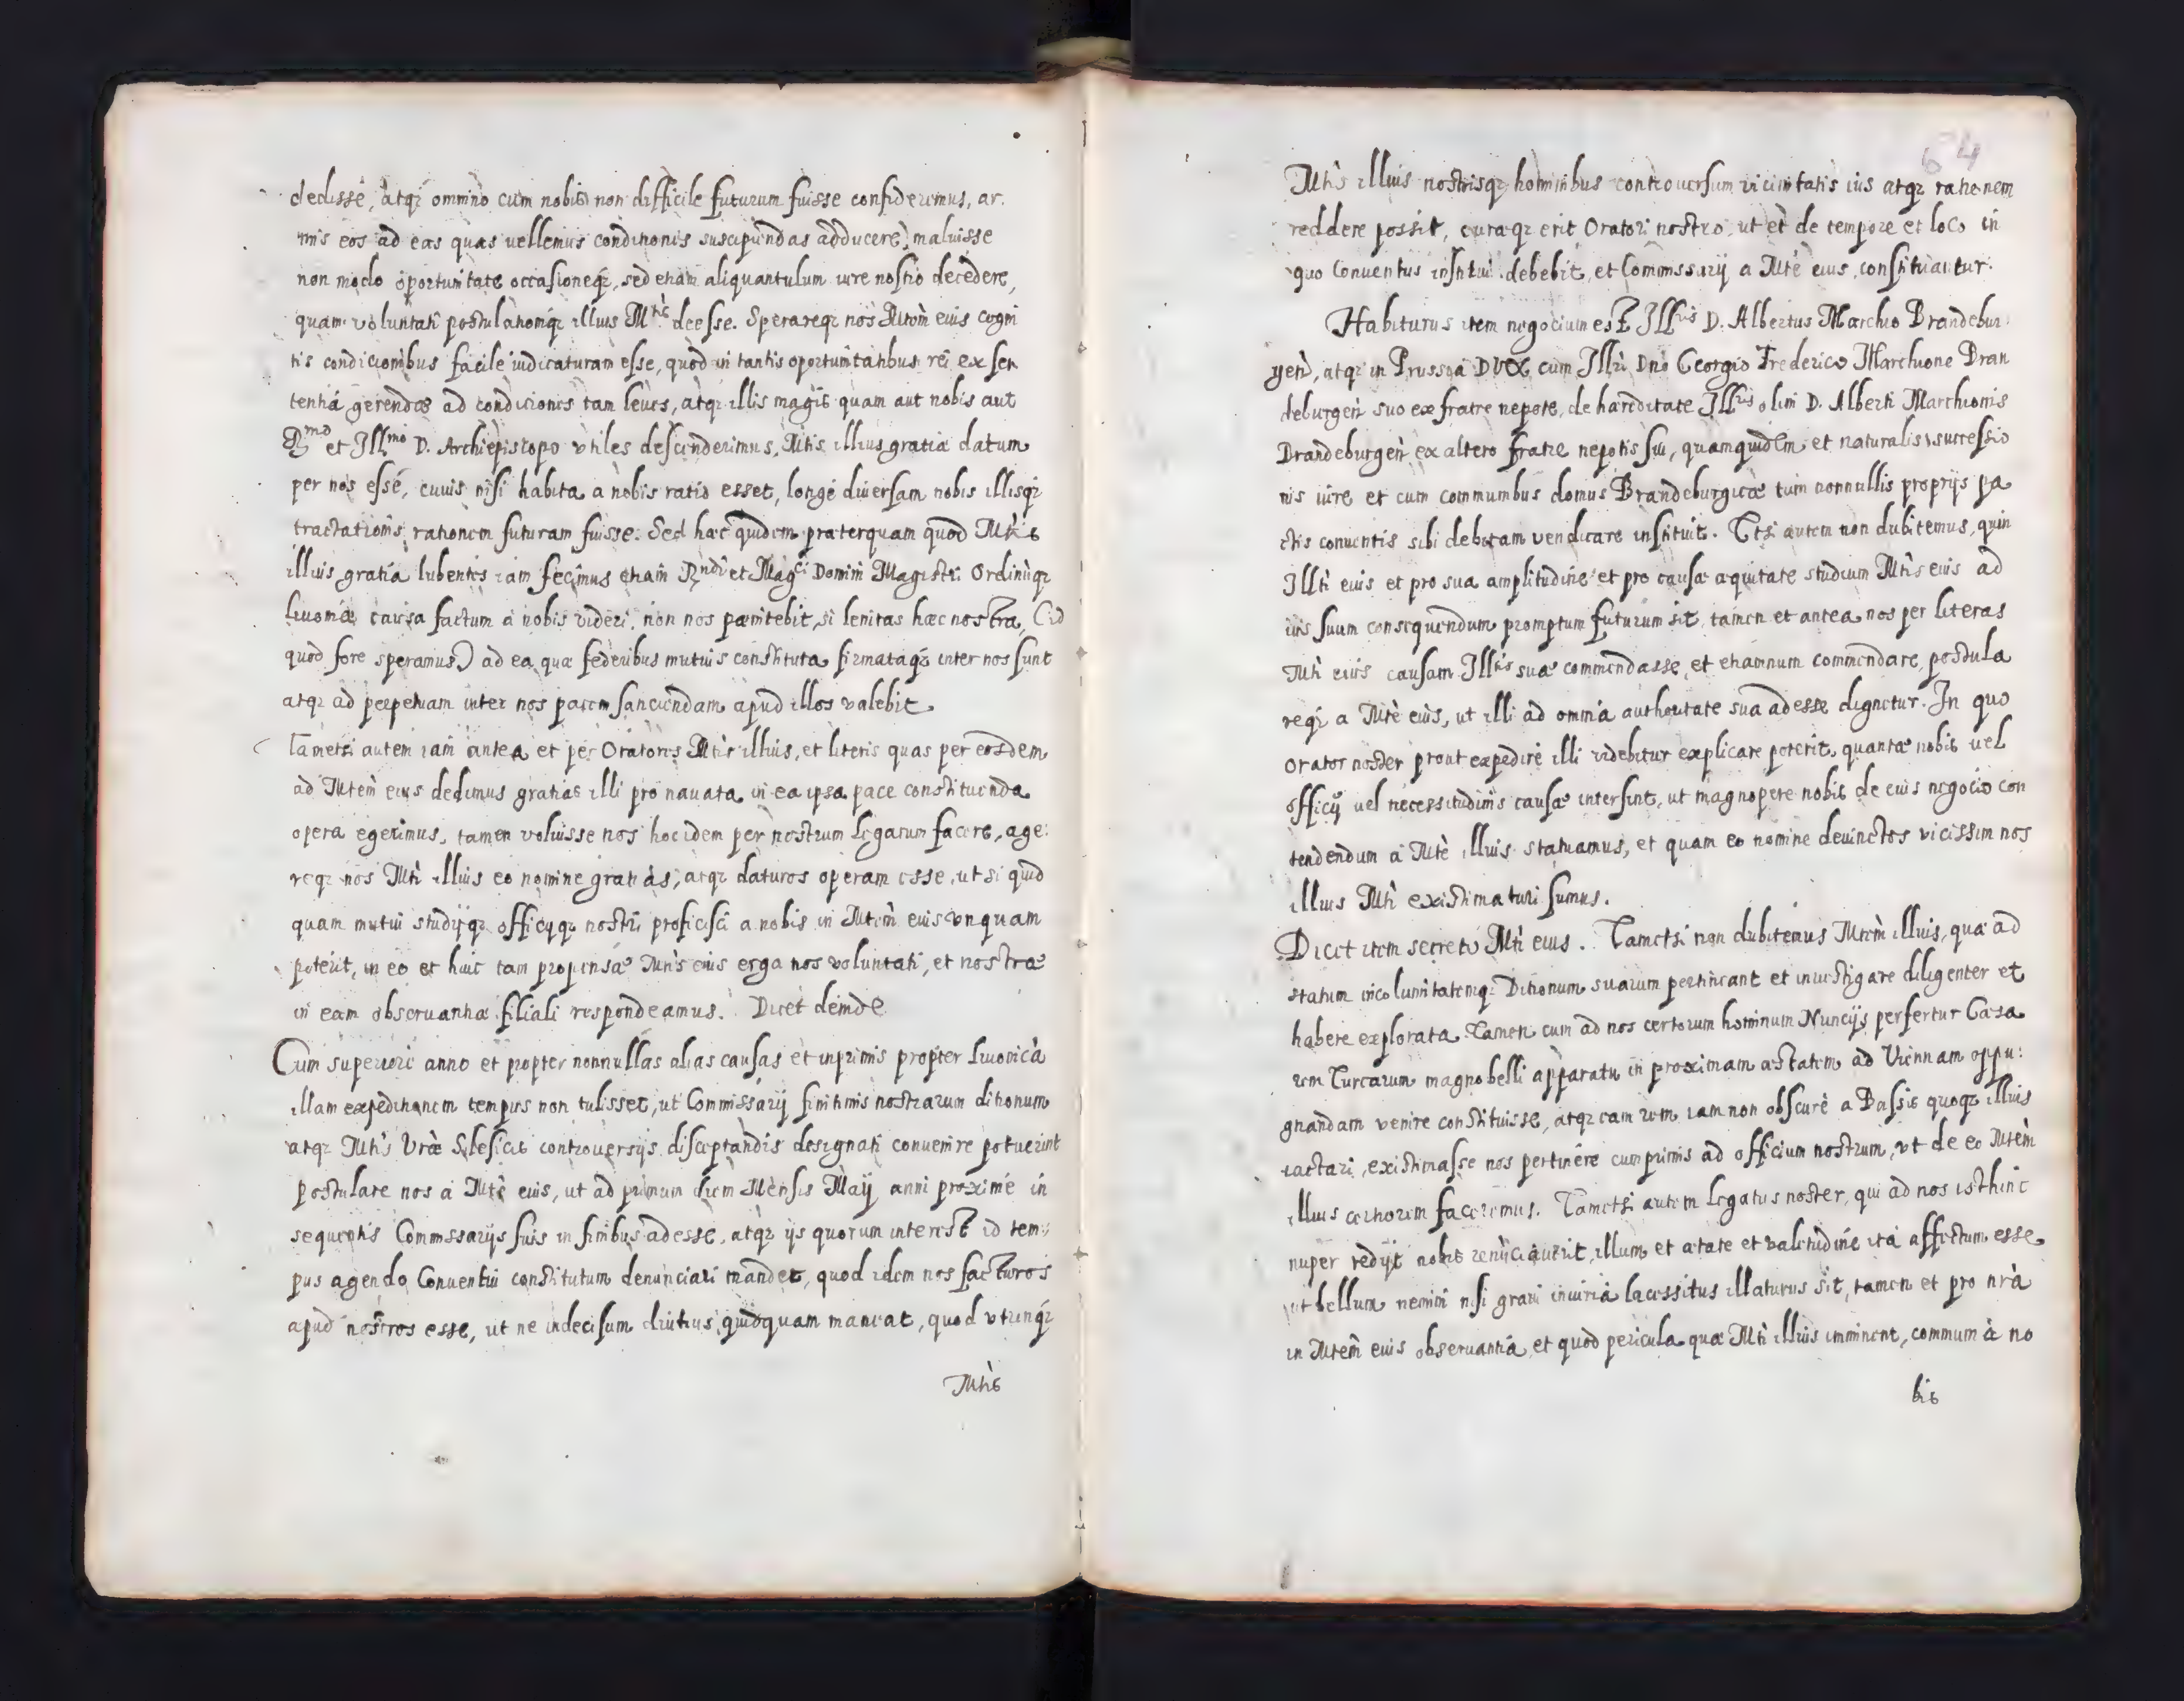 dedisse, atq; omnino cum nobis non difficile futurum fuisse confideremus, ar:
mis eos ad eas quas uellemus conditionis suscipiendas adducere, maluisse
non modo oportunitate occasioneq;, sed etiam aliquantulum iure nostro decedere,
quam voluntati postulationiq; illius Mtis deesse. Sperareq; nos Mtem eius cogni
tis condicionibus facile iudicaturam esse, quod in tantis oportunitatibus rei ex sen
tentia gerendae ad condiciones tam leues, atq; illis magis quam aut nobis aut
Rmo et Illmo D. Archiepiscopo vtiles descenderimus, Mtis illius gratia datum
per nos esse, cuius nisi habita a nobis ratio esset, longe diuersam nobis illisq;
tractationis rationem futuram fuisse. Sed haec quidem praeterquam quod Mtis
illius gratia lubentes iam fecimus etiam Rndi et Magci Domini Magistri Ordinisq;
Liuoniae causa factum a nobis videri, non nos paenitebit, si lenitas haec nostra, (id
quod fore speramus) ad ea quae federibus mutuis constituta firmataq; inter nos sunt
atq; ad perpetuam inter nos pacem sanciendam apud illos valebit.
Tametsi autem iam antea et per Oratores Mtis illius, et literis quas per eosdem
ad Mtem eius dedimus gratias illi pro nauata in ea ipsa pace constituenda
opera egerimus, tamen voluisse nos hoc idem per nostrum Legatum facere, age:
req; nos Mti illius eo nomine gratias, atq; daturos operam esse, ut si quid
quam mutui studijq; officijq; nostri proficisci a nobis in Mtem eius vnquam
poterit, in eo et huic tam propensae Mtis eius erga nos voluntati, et nostrae
in eam obseruantiae filiali respondeamus. Dicet deinde
Cum superiori anno et propter nonnullas alias causas et inprimis propter Liuonica
illam expeditionem tempus non tulisset, ut Commissarij finitimis nostrarum ditionum
atq; Mtis Vrae Slesicis controuersijs disceptandis designati conuenire potuerint
postulare nos a Mte eius, ut ad primum diem Mensis Maij anni proxime in
sequentis Commissarijs suis in finibus adesse, atq; ijs quorum interest id tem:
pus agendo Conuentui constitutum denunciari mandet, quod idem nos facturos
apud nostros esse, ut ne indecisum diutius quidquam maneat, quod vtrinq;
Mtis
64
Mtis illius nostrisq; hominibus controuersum vicinitatis ius atq; rationem
reddere possit, curaq; erit Oratori nostro, ut et de tempore et loco in
quo Conuentus institui debebit, et Commissarij a Mte eius, constituantur.
Habiturus item negocium est Illris D. Albertus Marchio Brandebur:
gen, atq; in Prussia DVX cum Illri Dno Georgio Frederico Marchione Bran
deburgen suo ex fratre nepote, de haereditate Illris olim D. Alberti Marchionis
Brandeburgen ex altero fratre nepotis sui, quam quidem et naturalis successio
nis iure et cum communibus domus Brandeburgicae tum nonnullis proprijs pa
ctis conuentis sibi debitam vendicare instituit. Etsi autem non dubitemus, quin
Illti eius et pro sua amplitudine et pro causae aequitate studium Mtis eius ad
ius suum consequendum promptum futurum sit, tamen et antea nos per literas
Mti eius causam Illtis suae commendasse, et etiamnum commendare, postula
req; a Mte eius, ut illi ad omnia authoritate sua adesse dignetur. In quo
orator noster prout expedire illi videbitur explicare poterit, quantae nobis uel
officij uel necessitudinis causae intersint, ut magnopere nobis de eius negocio con
tendendum a Mte illius statuamus, et quam eo nomine deuinctos vicissim nos
illius Mti existimaturi sumus.
Dicet item secreto Mti eius. Tametsi non dubitemus Mtem illius, quae ad
statum incolumitatemq; Ditionum suarum pertineant et inuestigare diligenter et
habere explorata. Tamen cum ad nos certorum hominum Nuncijs perfertur Caesa
rem Turcarum magno belli apparatu in proximam aestatem ad Viennam oppu:
gnandam venire constituisse, atq; eam rem iam non obscure a Bassis quoq; illius
iactari, existimasse nos pertinere cumprimis ad officium nostrum, vt de eo Mtem
illius certiorem faceremus. Tametsi autem Legatus noster, qui ad nos isthinc
nuper redijt nobis renunciauerit, illum et aetate et valetudine ita affectum esse
ut bellum nemini nisi graui iniuria lacessitus illaturus sit, tamen et pro nra
in Mtem eius obseruantia, et quod pericula quae Mti illius imminent, communia no
bis